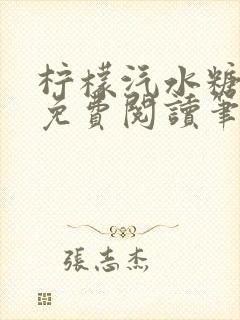 柠檬汽水糖
免費閱讀筆
張志杰